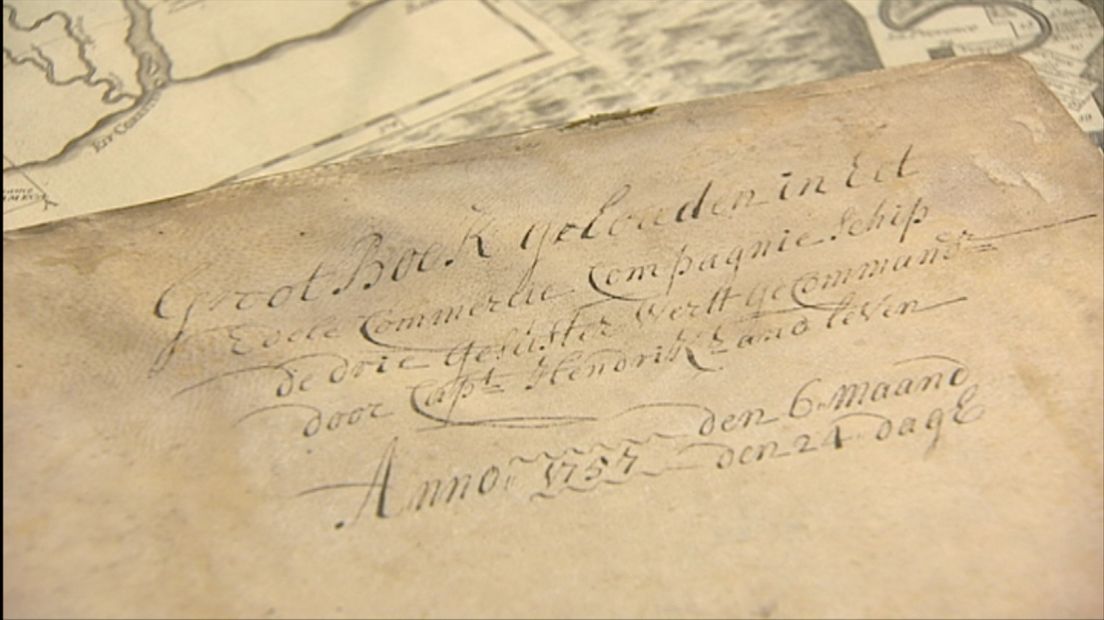 Groot Boek gehouden in Eet
Edele Commercie Compagnie Schip
de drie Gesusters Wertt geCommandt
door Capt. Hendrik Landleven
Anno 1757 den 6 Maand
den 24 dagE